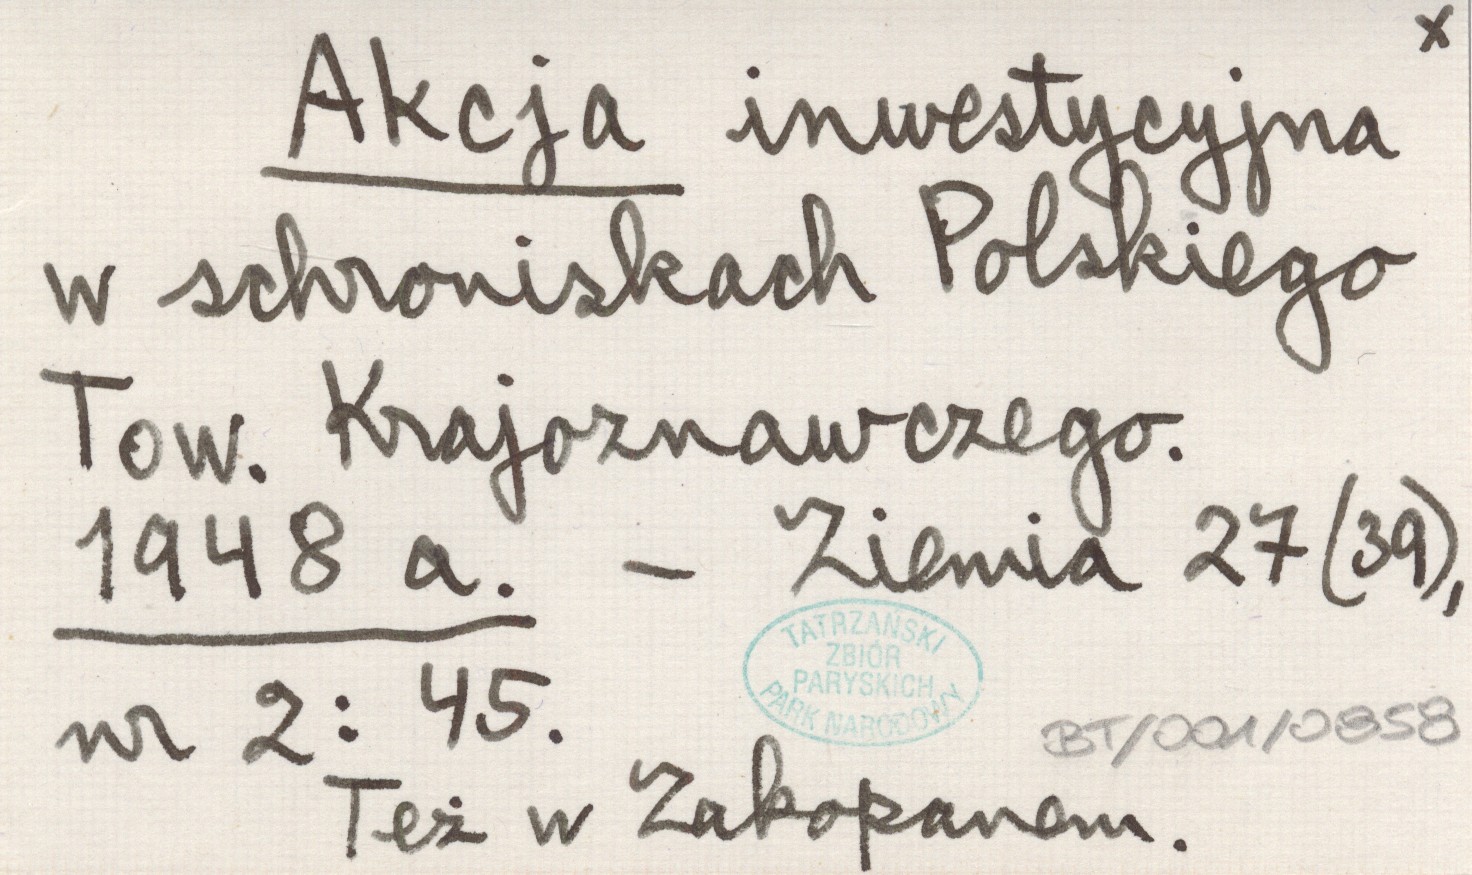 x
Akcja inwestycyjna
w schroniskach Polskiego
Tow. Krajoznawczego.
1948 a. – Ziemia 27 (39),
nr 2: 45.
TATRZAŃSKI
ZBIÓR
PARYSKICH
PARK NARODOWY
BT/001/0858
Też w Zakopanem.